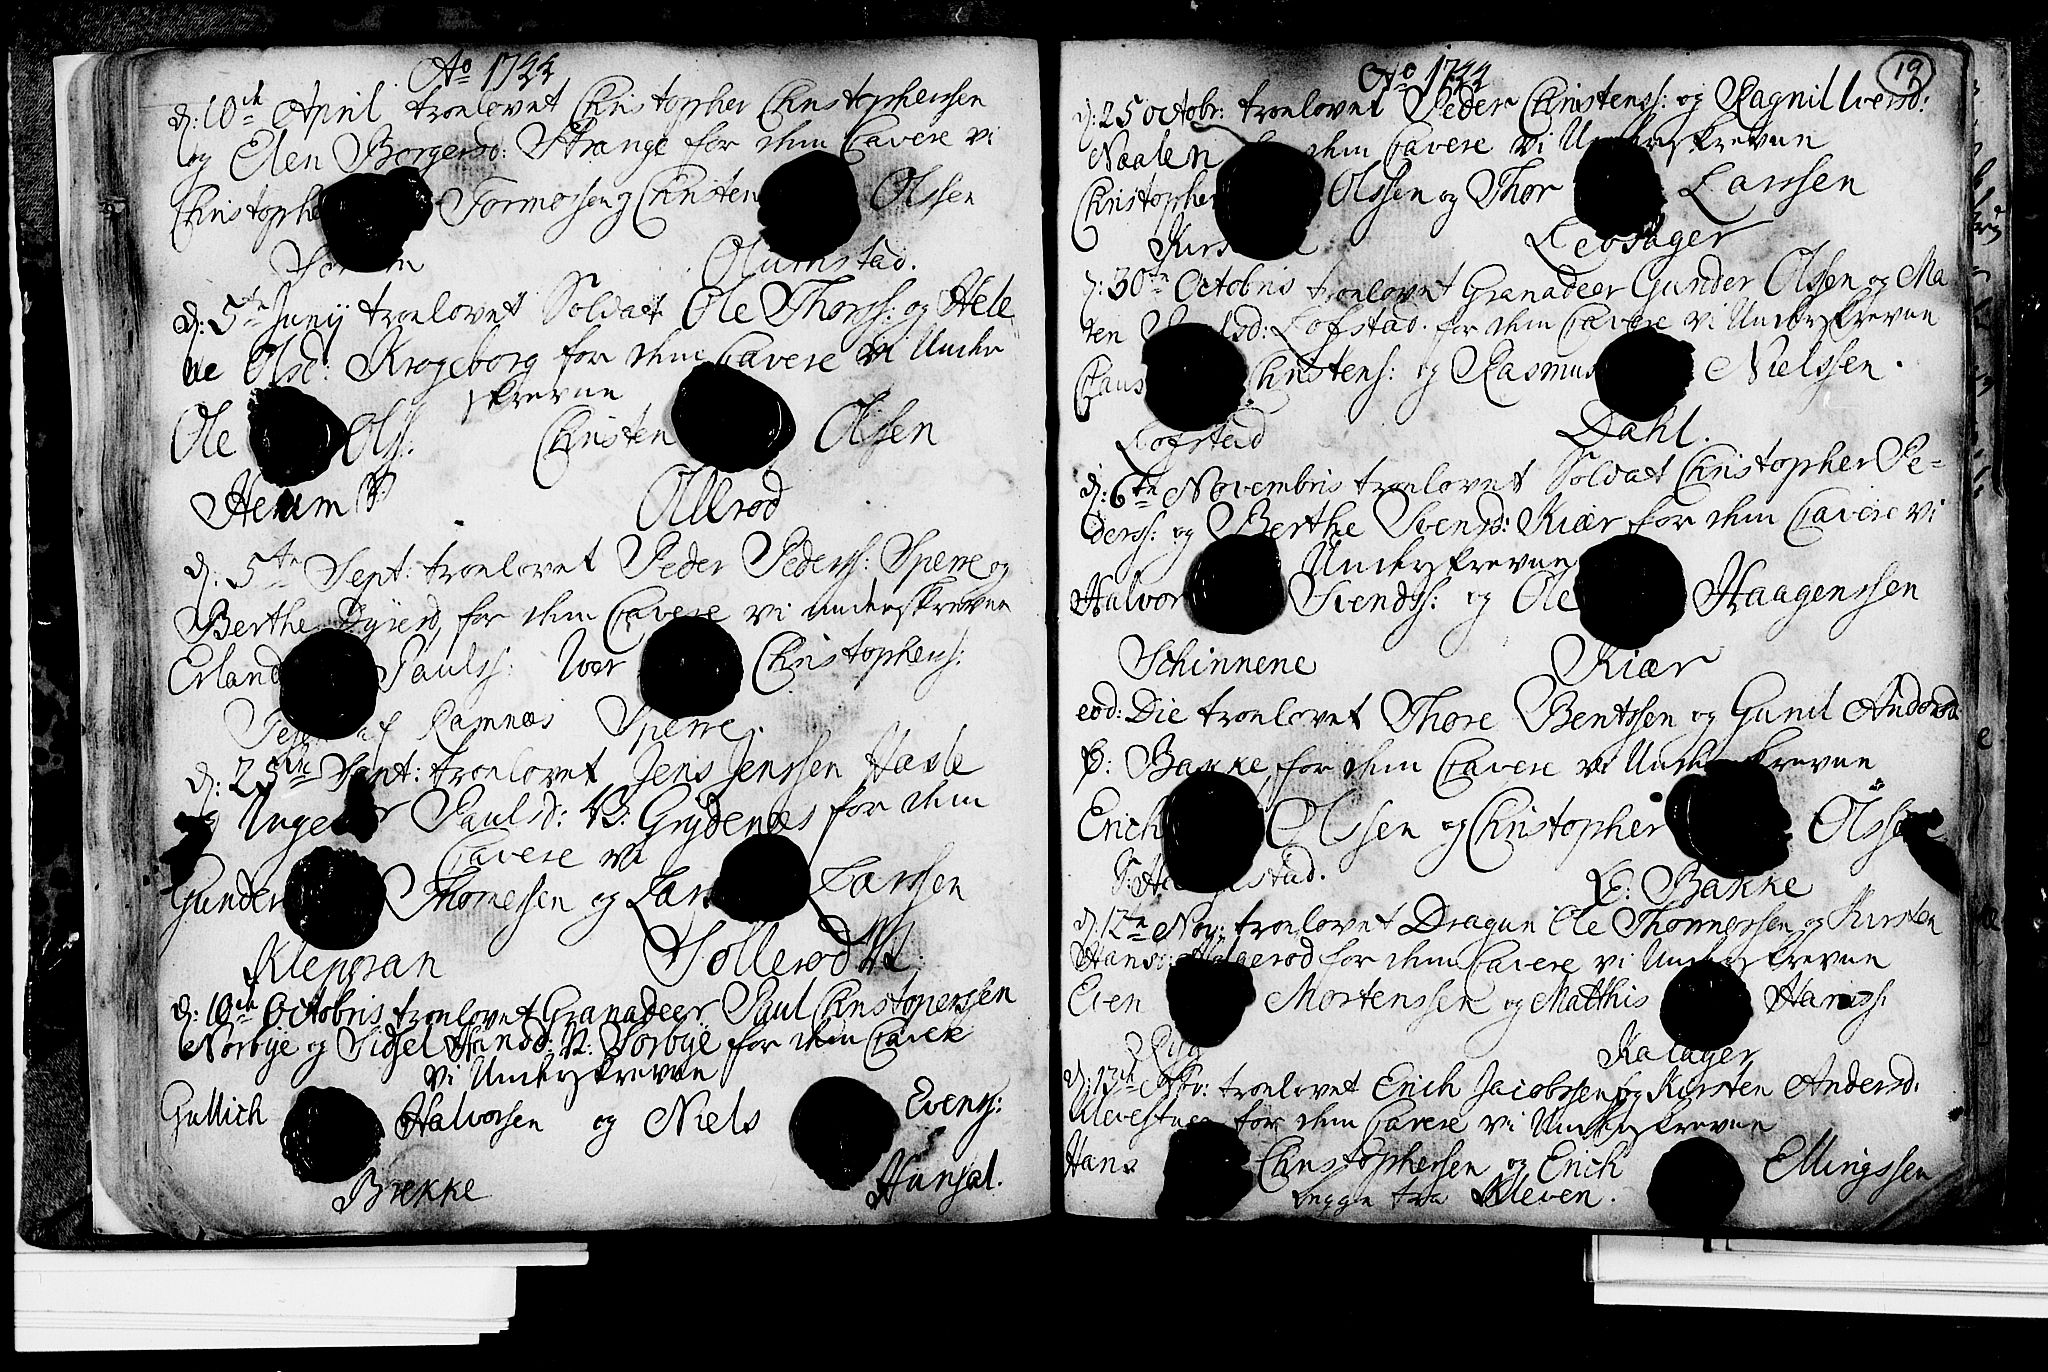 Ao 1744
d: 10de April troelovet Christopher Christophersen
og Elen Borgersd: Strange for dem Cavere vi
Christopher Tormossen og Christen Olssen
Olumstad.
d: 5te Junij troelovet Soldat Ole Thorss: og Hele
ne Olsd: Krogeborg for dem Cavere vi Under
skrevne
Ole Olss: Christen Olssen
Herum Ollerød
d: 5te Sept: troelovet Peder Pederss: Sperre og
Berthe for dem Cavere vi underskrevne
Erland Paulss: Iver Christophers:
Ramnæs Sperre.
d: 25de Sept: troelovet Jens Jenssen Hasle
og Ingebor Paulsd: V: Grydenæs for dem
Cavere vi
Gunder Thomessen og Lars Larssen
Klepøran Sollerød
d: 10de Octobris troelovet Granadeer Paul Christopersen
Norbye og Sidsel Hansd: N: Sorbye for dem Cavere
vi Underskrevne
Gullich Halvorsen og Niels Evens:
Brekke Hansal.
19
Ao 1744
d: 25 Octobr: troelovet Peder Christenss: og Ragnil Iversd:
Naalen for dem Cavere vi Underskrevne
Christopher Olssen og Thor Larssen
Løvsager
d: 30te Octobris troelovet Granadeer Gunder Olssen og Ma
ren Lofstad. for dem Cavere vi Underskrevne
Claus Christens: og Rasmus Nielssen.
Lofstad Dahl.
d: 6te Novembris troelovet Soldat Christopher Pe-
derss: og Berthe Svensd: Kiær for dem Cavere vi
Underskrevne
Halvor Svendss: og Ole Haagenssen
Schinnene Kiær
eod: Die troelovet Thore Bentssen og Gunil Andersd:
Ø: Bakke for dem Cavere vi Underskrevne
Erich Olssen og Christopher Olssen
Ø: Bakke
d: 12te Nov: troelovet Dragun Ole Thommessen og Kirsten
Hansd: for dem Cavere vi Underskrevne
Even Mortenssen og Matthis Hanss:
Kalager
d: troelovet Erich Jacobssen og Kirsten Andersd:
for dem Cavere vi Underskrevne
Hans Christophersen og Erich Ellingssen
Kleven.